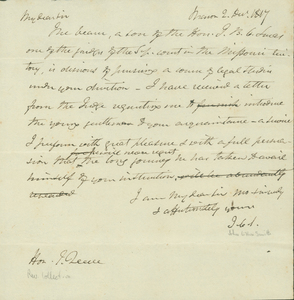 My dear Sir
2. Dec. 1817
Mr. Lucas, a son of the Hon. J. B. C. Lucas
one of the judges of the Sup. court in the Missouri terri-
tory, is desirous of pursuing a course of legal studies
under your direction - I have received a letter
from the Judge requesting me to introduce
the young gentleman to your acquaintance - a service
I perform with great pleasure & with a full persua-
sion that the long journey he has taken to avail
himself of your instruction, will be abundantly
rewarded
I am My dear Sir most sincerely
& affectionately yours
J. C. S.
Hon. T. Reeve